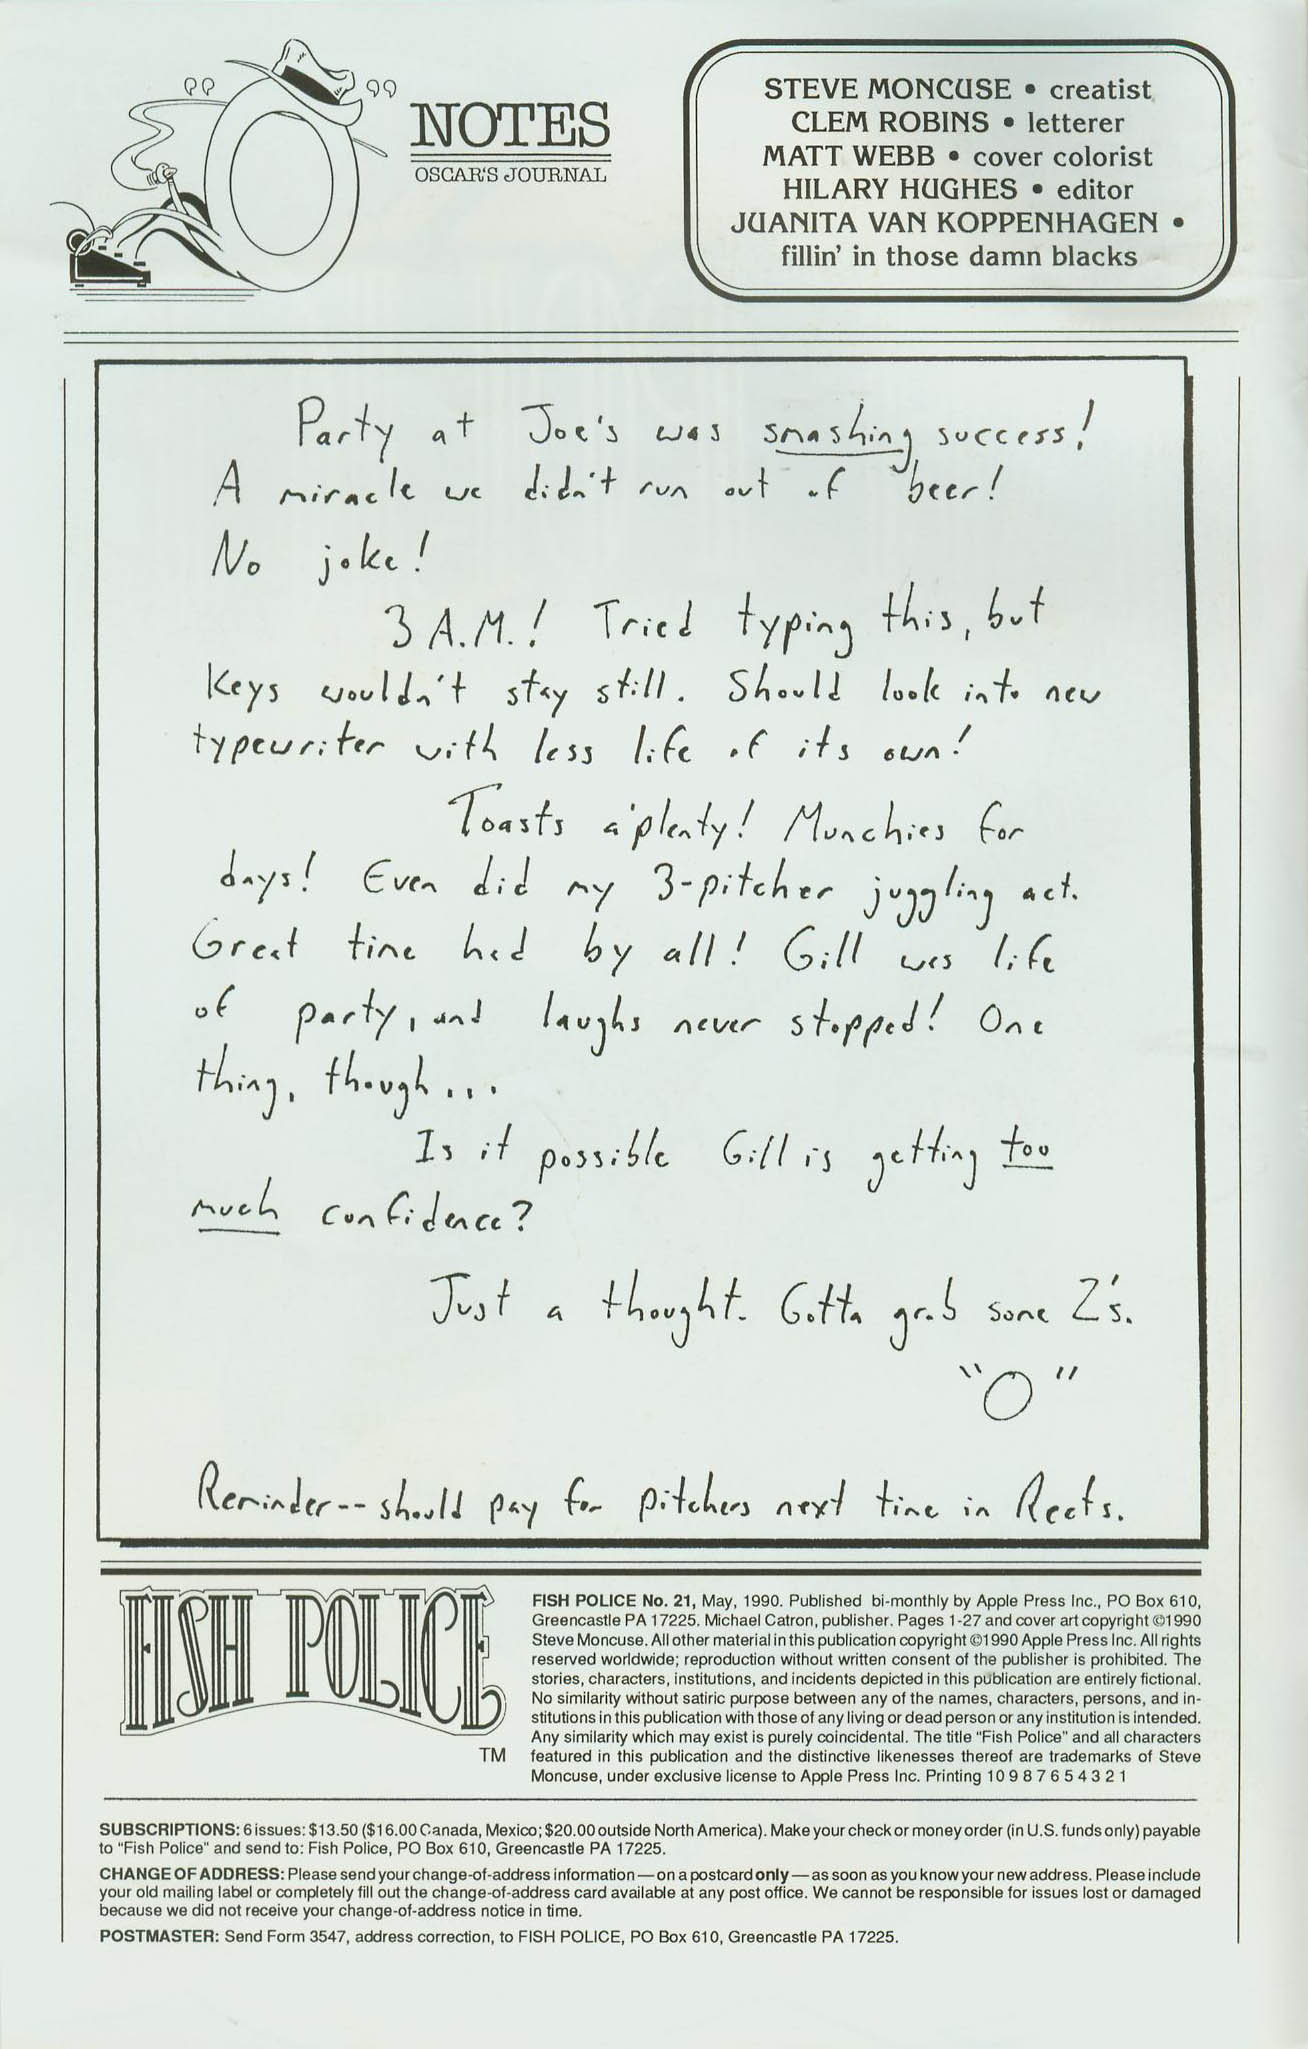 " NOTES "
OSCAR'S JOURNAL
STEVE MONCUSE • creatist
CLEM ROBINS • letterer
MATT WEBB • cover colorist
HILARY HUGHES • editor
JUANITA VAN KOPPENHAGEN •
fillin' in those damn blacks
Party at Joe's was smashing success!
A miracle we didn't run out of beer!
No joke!
3 A.M.! Tried typing this, but
keys wouldn't stay still. Should look into new
typewriter with less life of its own!
Toasts a'plenty! Munchies for
days! Even did my 3-pitcher juggling act.
Great time had by all! Gill was life
of party, and laughs never stopped! One
thing, though...
Is it possible Gill is getting too
much confidence?
Just a thought. Gotta grab some Z's.
"O"
Reminder-- should pay for pitchers next time in Reefs.
FISH POLICE
TM
FISH POLICE No. 21, May, 1990. Published bi-monthly by Apple Press Inc., PO Box 610,
Greencastle PA 17225. Michael Catron, publisher. Pages 1-27 and cover art copyright ©1990
Steve Moncuse. All other material in this publication copyright ©1990 Apple Press Inc. All rights
reserved worldwide; reproduction without written consent of the publisher is prohibited. The
stories, characters, institutions, and incidents depicted in this publication are entirely fictional.
No similarity without satiric purpose between any of the names, characters, persons, and in-
stitutions in this publication with those of any living or dead person or any institution is intended.
Any similarity which may exist is purely coincidental. The title "Fish Police" and all characters
featured in this publication and the distinctive likenesses thereof are trademarks of Steve
Moncuse, under exclusive license to Apple Press Inc. Printing 10 9 8 7 6 5 4 3 2 1
SUBSCRIPTIONS: 6 issues: $13.50 ($16.00 Canada, Mexico; $20.00 outside North America). Make your check or money order (in U.S. funds only) payable
to "Fish Police" and send to: Fish Police, PO Box 610, Greencastle PA 17225.
CHANGE OF ADDRESS: Please send your change-of-address information — on a postcard only — as soon as you know your new address. Please include
your old mailing label or completely fill out the change-of-address card available at any post office. We cannot be responsible for issues lost or damaged
because we did not receive your change-of-address notice in time.
POSTMASTER: Send Form 3547, address correction, to FISH POLICE, PO Box 610, Greencastle PA 17225.